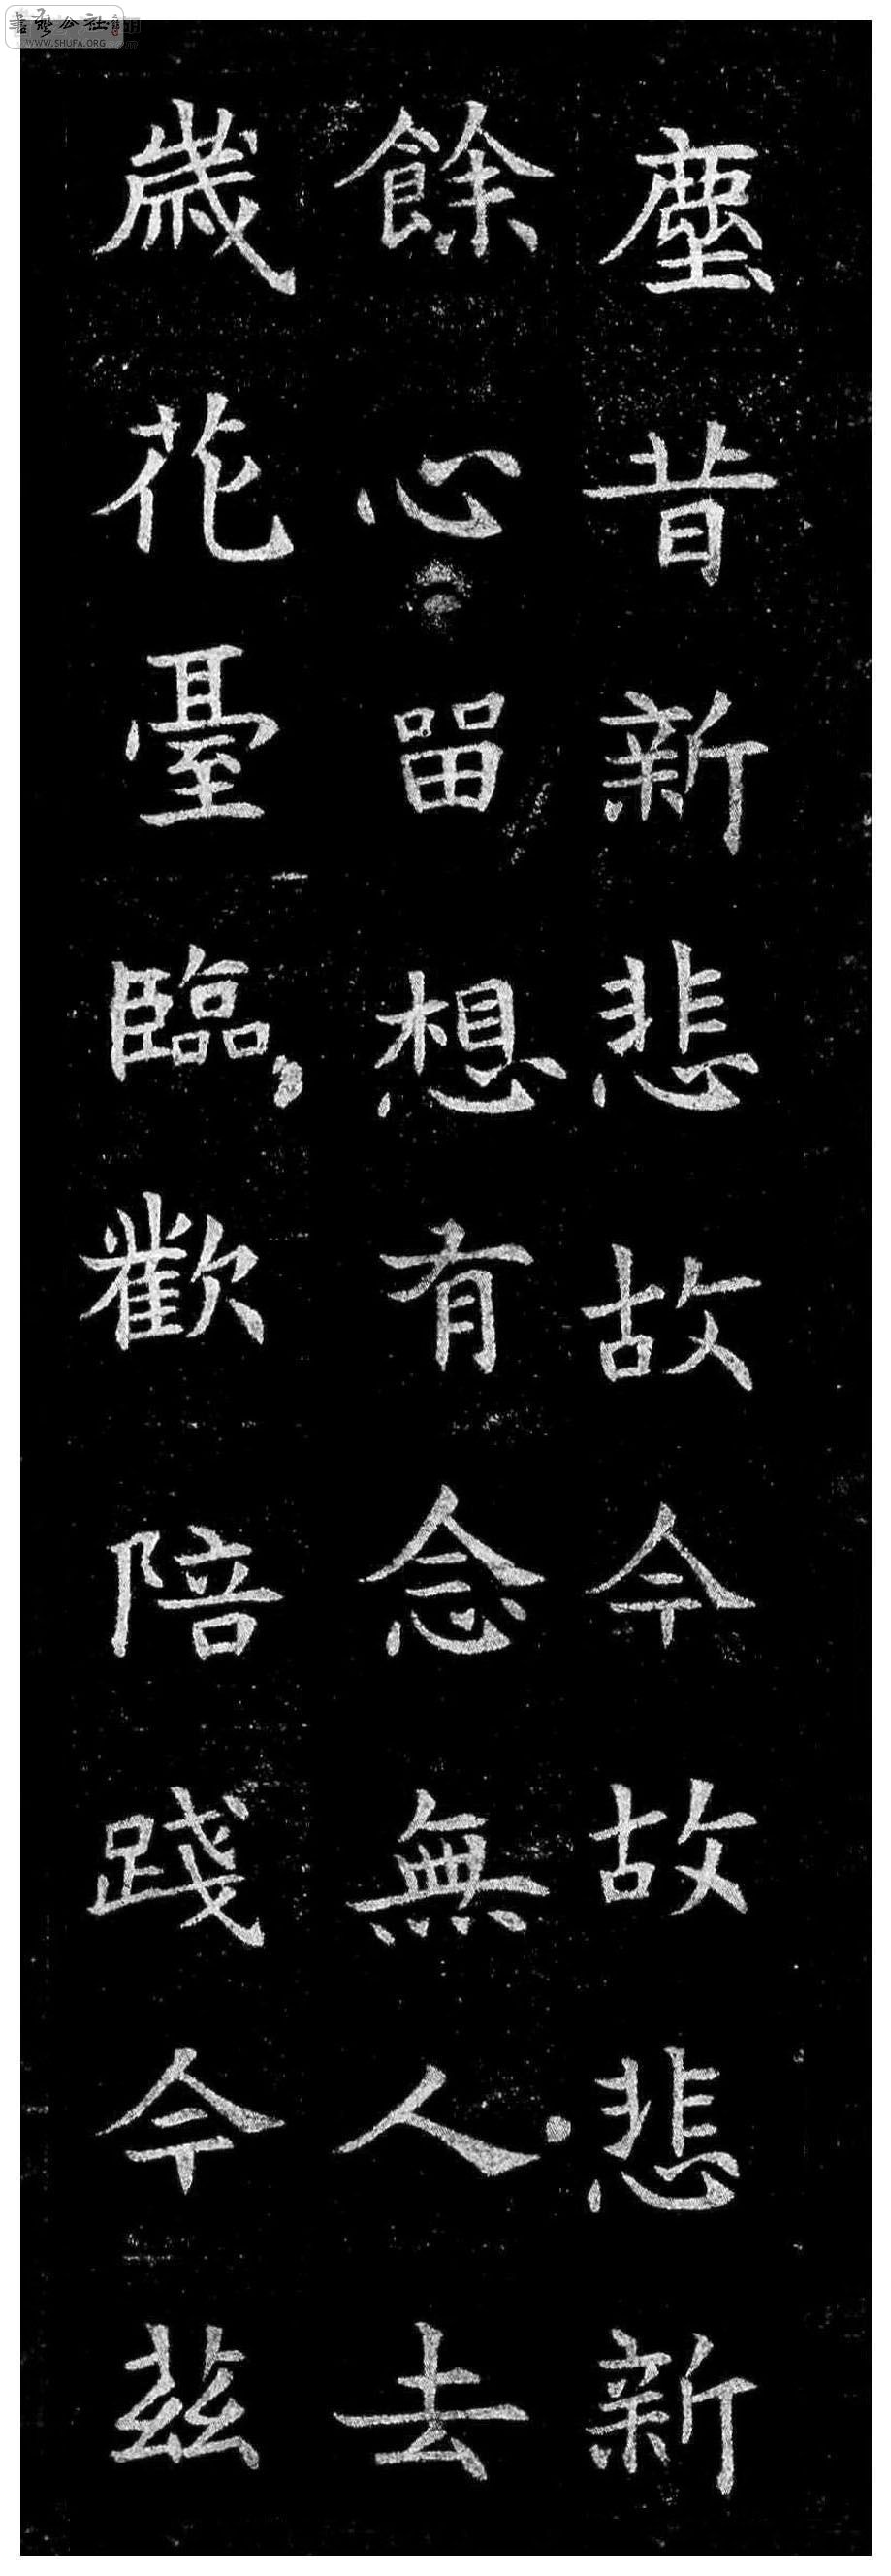 塵昔新悲故今故悲新
餘心留想有念無人去
歲花臺臨歡陪踐今茲
書藝公社
WWW.SHUFA.ORG